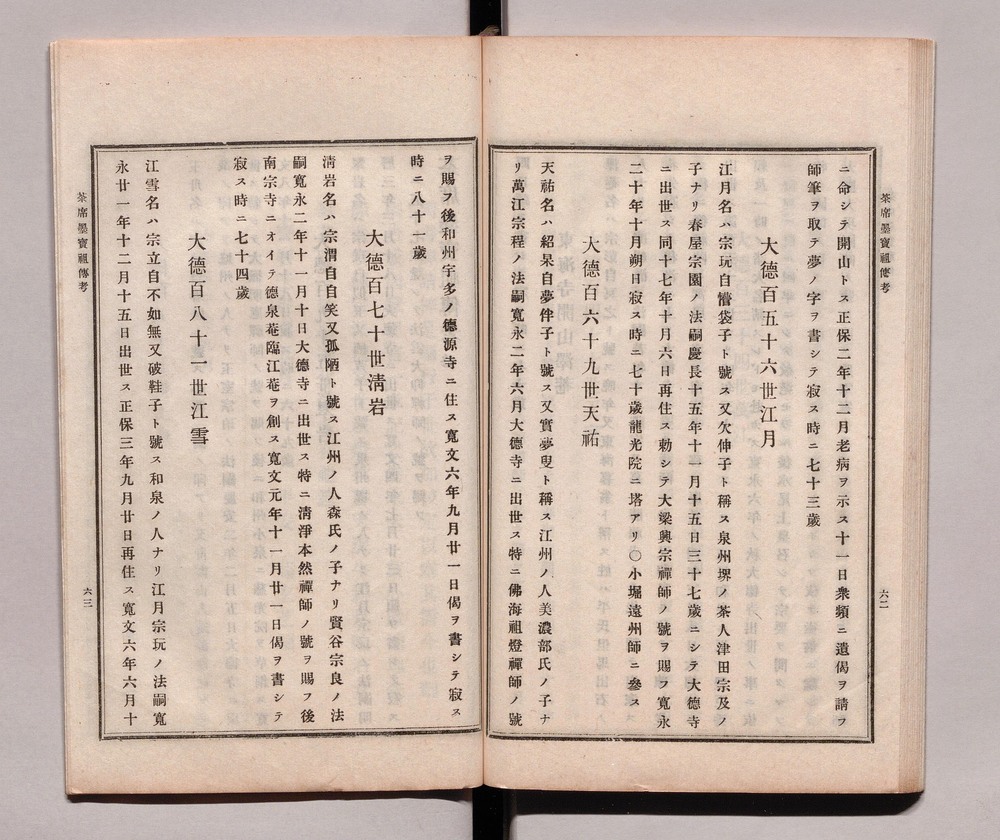 茶席墨寶祖傳考
ニ命シテ開山トス正保二年十二月老病ヲ示ス十一日衆頻ニ遺偈ヲ請フ
師筆ヲ取テ夢ノ字ヲ書シテ寂ス時ニ七十三歲
大德百五十六世江月
江月名ハ宗玩自懵袋子ト號ス又欠伸子ト稱ス泉州堺ノ茶人津田宗及ノ
子ナリ春屋宗園ノ法嗣慶長十五年十一月十五日三十七歲ニシテ大德寺
ニ出世ス同十七年十月六日再住ス勅シテ大梁興宗禪師ノ號ヲ賜フ寬永
二十年十月朔日寂ス時ニ七十歲龍光院ニ塔アリ〇小堀遠州師ニ參ス
大德百六十九世天祐
天祐名ハ紹杲自夢伴子ト號ス又實夢叟ト稱ス江州ノ人美濃部氏ノ子ナ
リ萬江宗程ノ法嗣寬永二年六月大德寺ニ出世ス特ニ佛海祖燈禪師ノ號
六二
ヲ賜フ後和州宇多ノ德源寺ニ住ス寬文六年九月廿一日偈ヲ書シテ寂ス
時ニ八十一歲
大德百七十世淸岩
淸岩名ハ宗渭自自笑又孤陋ト號ス江州ノ人森氏ノ子ナリ賢谷宗良ノ法
嗣寬永二年十一月十日大德寺ニ出世ス特ニ淸淨本然禪師ノ號ヲ賜フ後
南宗寺ニオイテ德泉菴臨江菴ヲ創ス寬文元年十一月廿一日偈ヲ書シテ
寂ス時ニ七十四歲
大德百八十一世江雪
江雪名ハ宗立自不如無又破鞋子ト號ス和泉ノ人ナリ江月宗玩ノ法嗣寬
永廿一年十二月十五日出世ス正保三年九月廿日再住ス寬文六年六月十
茶席墨寶祖傳考
六三